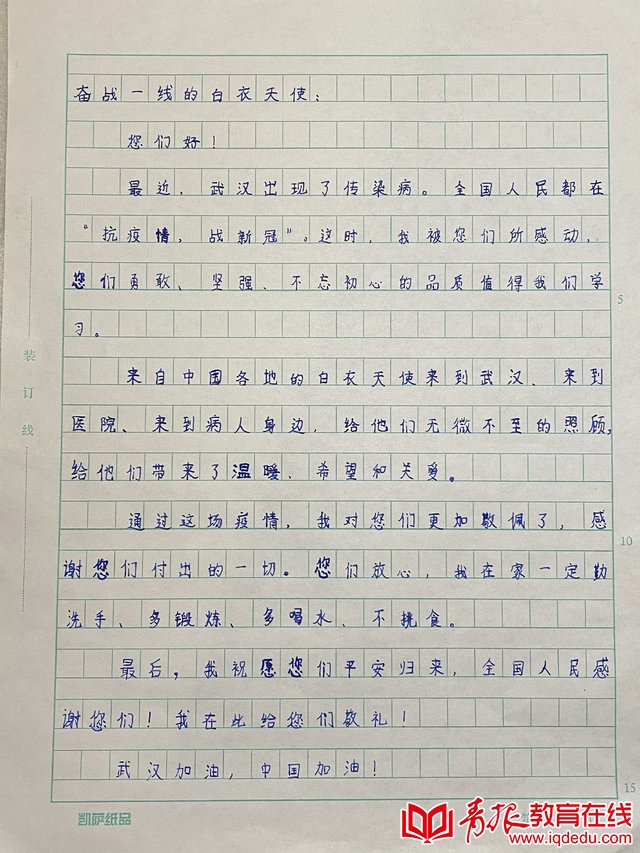 奋战一线的白衣天使：
您们好！
最近，武汉出现了传染病。全国人民都在
“抗疫情，战新冠”。这时，我被您们所感动，
您们勇敢、坚强、不忘初心的品质值得我们学
习。
5
来自中国各地的白衣天使来到武汉、来到
医院、来到病人身边，给他们无微不至的照顾，
给他们带来了温暖、希望和关爱。
通过这场疫情，我对您们更加敬佩了，感
10
谢您们付出的一切。您们放心，我在家一定勤
洗手、多锻炼、多喝水、不挑食。
最后，我祝愿您们平安归来，全国人民感
谢您们！我在此给您们敬礼！
武汉加油，中国加油！
15
装订线
凯萨纸品
青报教育在线
www.iqdedu.com